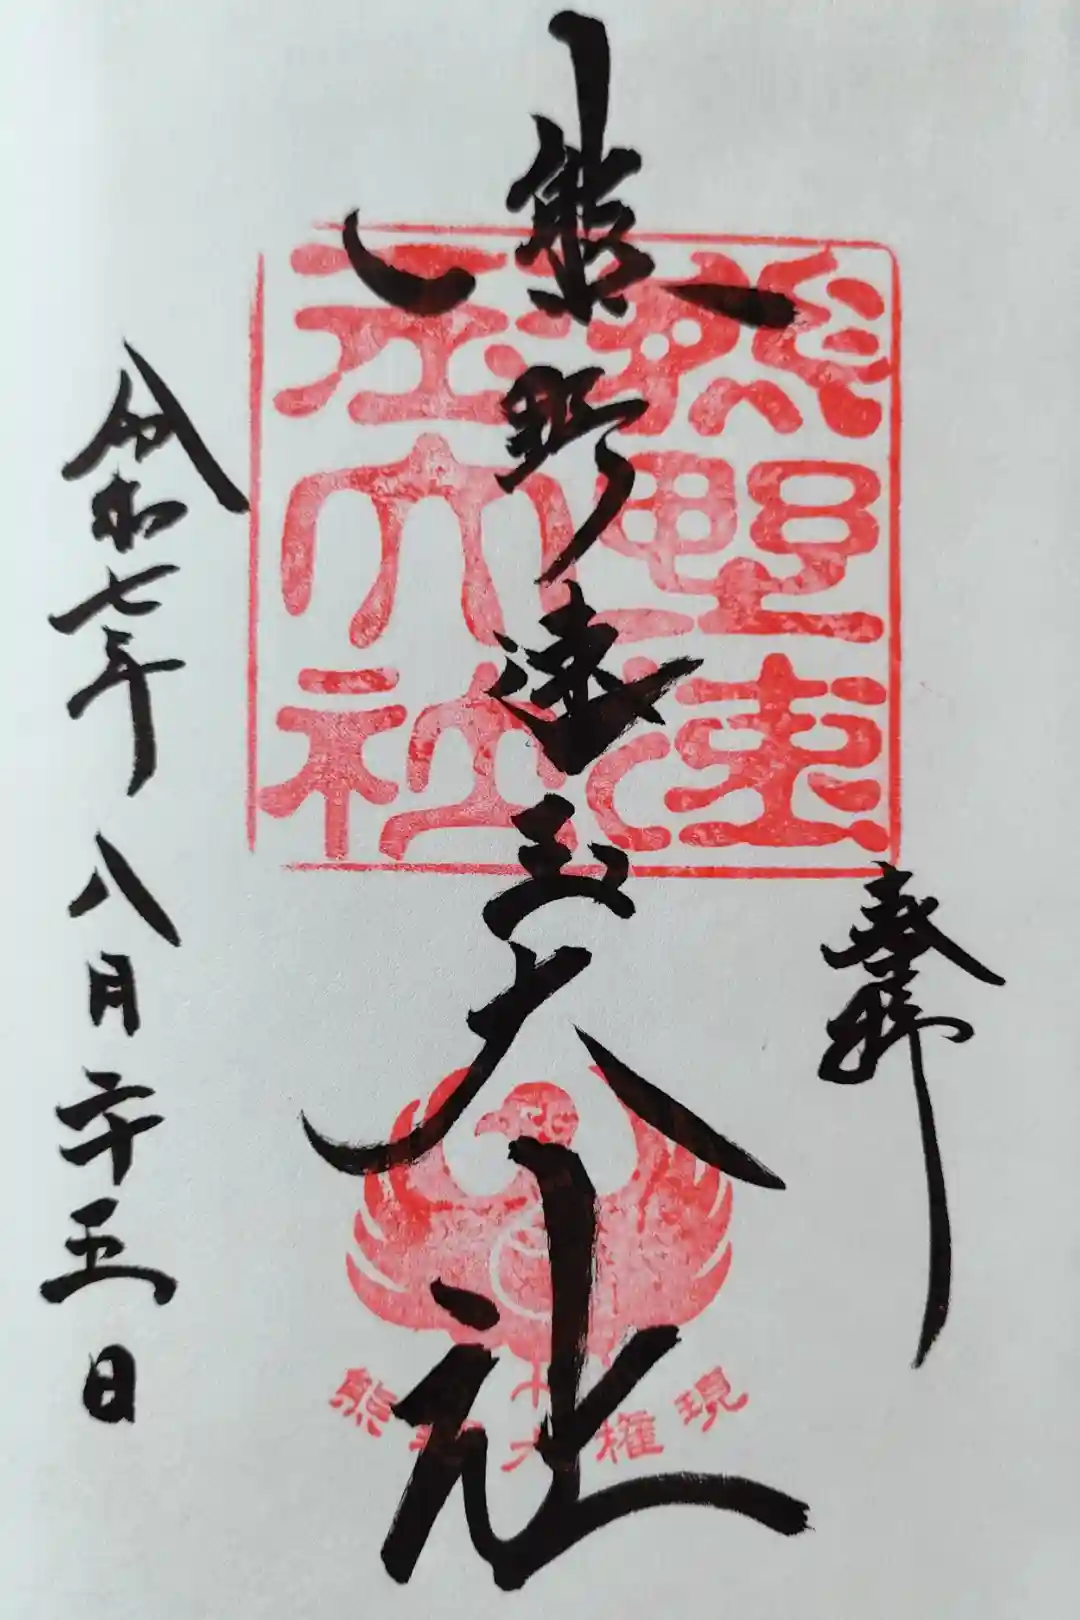 奉拝
熊野速玉大社
熊野速玉大社
熊野大権現
令和七年八月二十五日